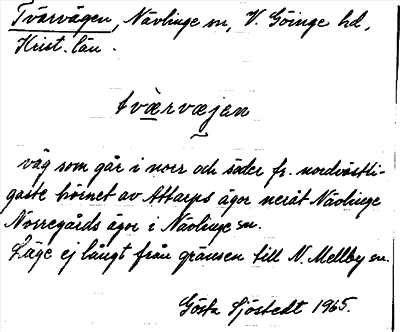 Tvärvägen, Nävlinge sn, V. Göinge hd,
Krist. län.
tværvæjen
väg som går i norr och söder fr. nordvästli-
gaste hörnet av Attarps ägor neråt Nävlinge
Norregårds ägor i Nävlinge sn.
Läge ej långt från gränsen till N. Mellby sn.
Gösta Sjöstedt 1965.